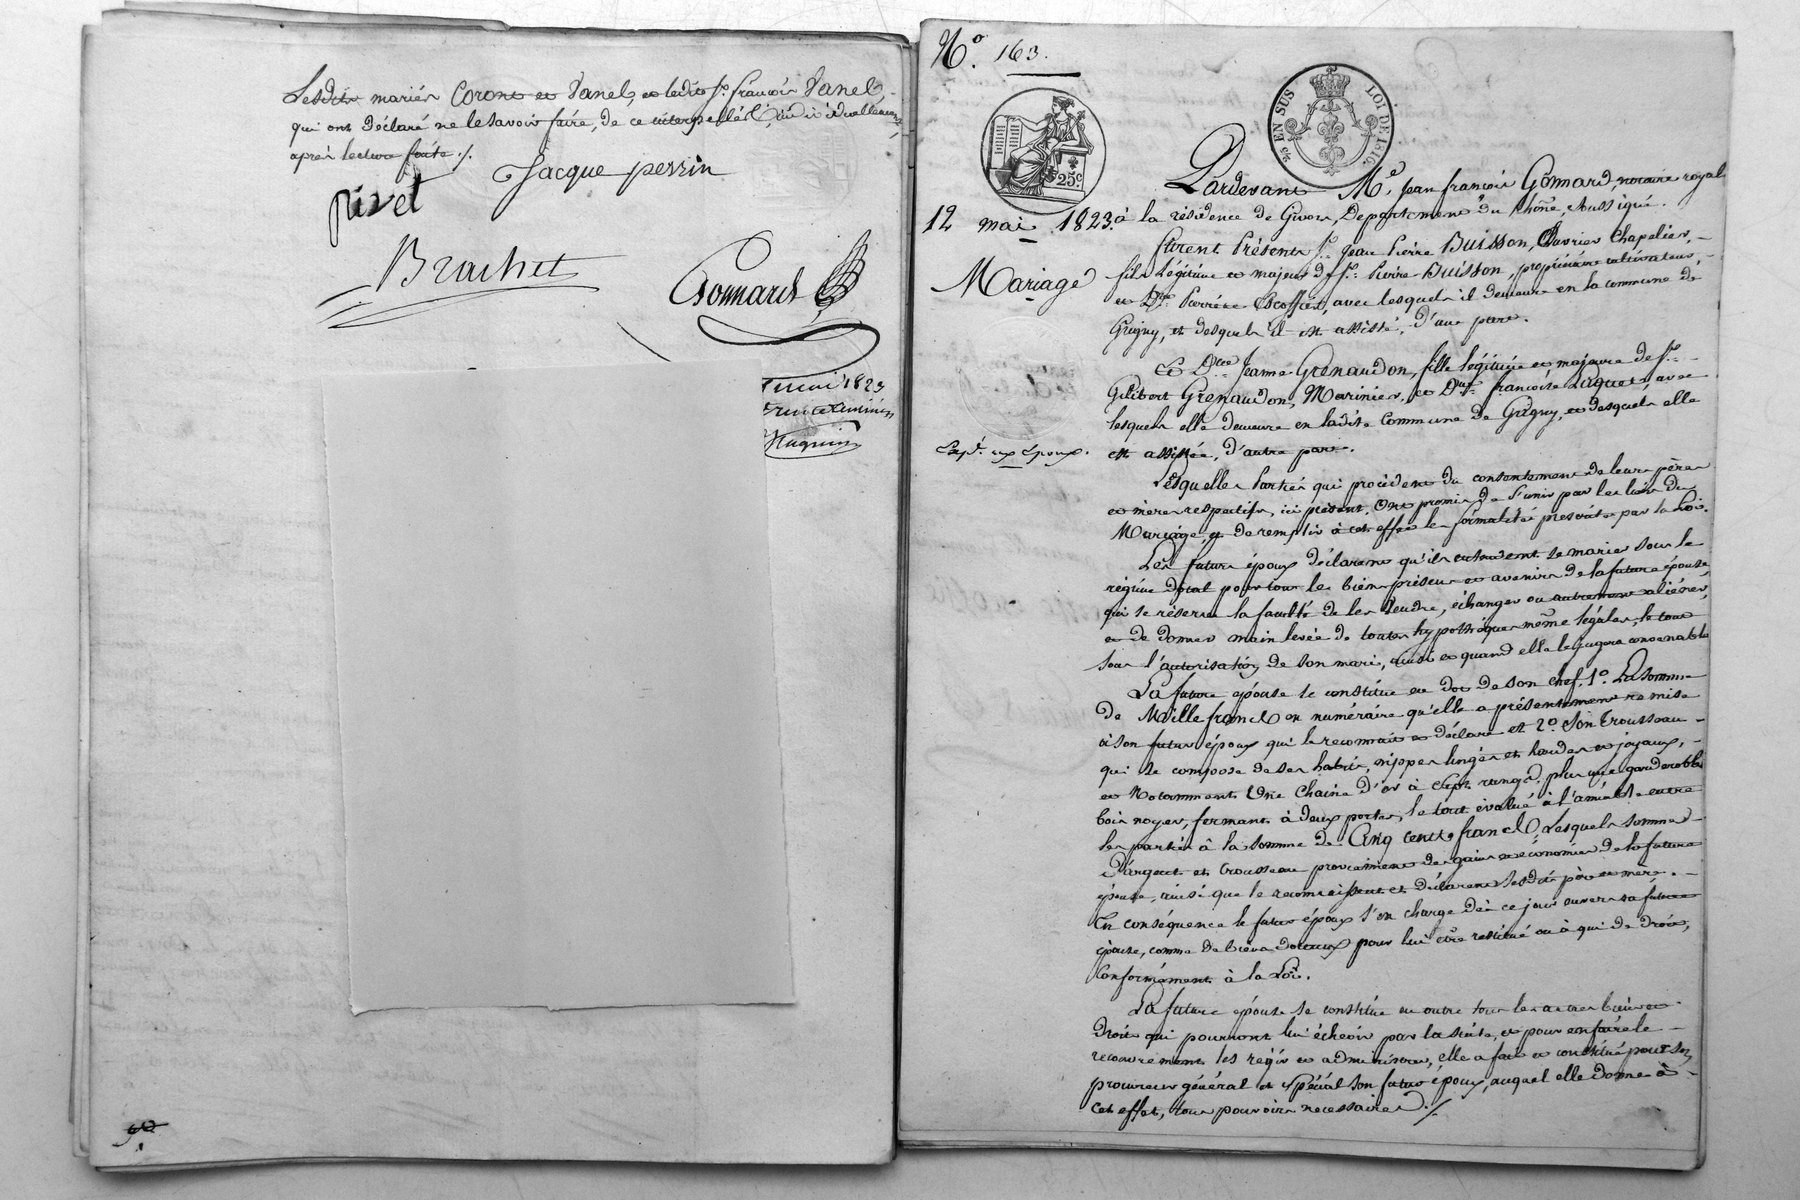 Lesdits mariés Coront et Vanel, et ledit Sr. françois Vanel
qui ont déclaré ne le savoir faire, de ce interpellés individuellement
après lecture faite ./.
Jacque perrin
pivet
Brachet
Gonnard
mai 1823
Huguin
N.o 163.
25 EN SUS
LOI DE 1816.
25c
12 mai 1823.
Mariage
Exp.n aux Epoux.
Pardevant M.e Jean françois Gonnard, notaire royal
à la résidence de Givors, Département du Rhône, soussigné.
furent Présents Sr. Jean Pierre Buisson, Ouvrier Chapelier,
fils légitime et majeur de Sr. Pierre Buisson, propriétaire cultivateur,
et Dme. Pierrette Escoffier, avec lesquels il demeure en la commune de
Grigny, et desquels il est assisté, d'une part.
Et Dlle. Jeanne Grenaudon, fille légitime et majeure de Sr.
Gilibert Grenaudon, Marinier, et Dme. françoise avec
lesquels elle demeure en ladite Commune de Grigny, et desquels elle
est assistée, d'autre part.
Lesquelles Parties qui procèdent du consentement de leurs pères
et mères respectifs, ici présent, Ont promis de s'unir par les liens du
Mariage, et de remplir à cet effet les formalités prescrites par la Loi.
Les futurs époux déclarent qu'ils entendent se marier sous le
régime dotal pour tous les biens présens et avenirs de la future épouse,
qui se réserve la faculté de les vendre, échanger ou autrement aliéner,
et de donner main levée de toutes hypothèques même légales, le tout
sous l'autorisation de son mari, ainsi et quand elle le jugera convenable
La future épouse se constitue en dot de son chef, 1.o La somme
de Mille francs en numéraire qu'elle a présentement remise
à son futur époux qui le reconnait et déclare et 2.o Son Trousseau
qui se compose de ses habits, nippes linges et hardes et joyaux,
et Notamment Une Chaine d'or à sept rangs, plus une garderobe
bois noyer, fermant à deux portes, le tout évalué à l'amiable entre
les parties à la somme de Cinq cents francs, Lesquels somme
d'argent et trousseau proviennent des gains et économies de la future
épouse, ainsi que le reconnaissent et déclarent lesdits père et mère.
En conséquence le futur époux s'en charge dès ce jour envers sa future
épouse, comme de biens dotaux pour lui être restitué ou à qui de droit,
Conformément à la Loi.
La future épouse se constitue en outre tous les autres biens et
droits qui pourront lui échoir par la suite, et pour en faire le
recouvrement les régir et administrer, elle a fait et constitué pour son
procureur général et spécial son futur époux, auquel elle donne à
cet effet, tous pouvoirs necessaires ./.